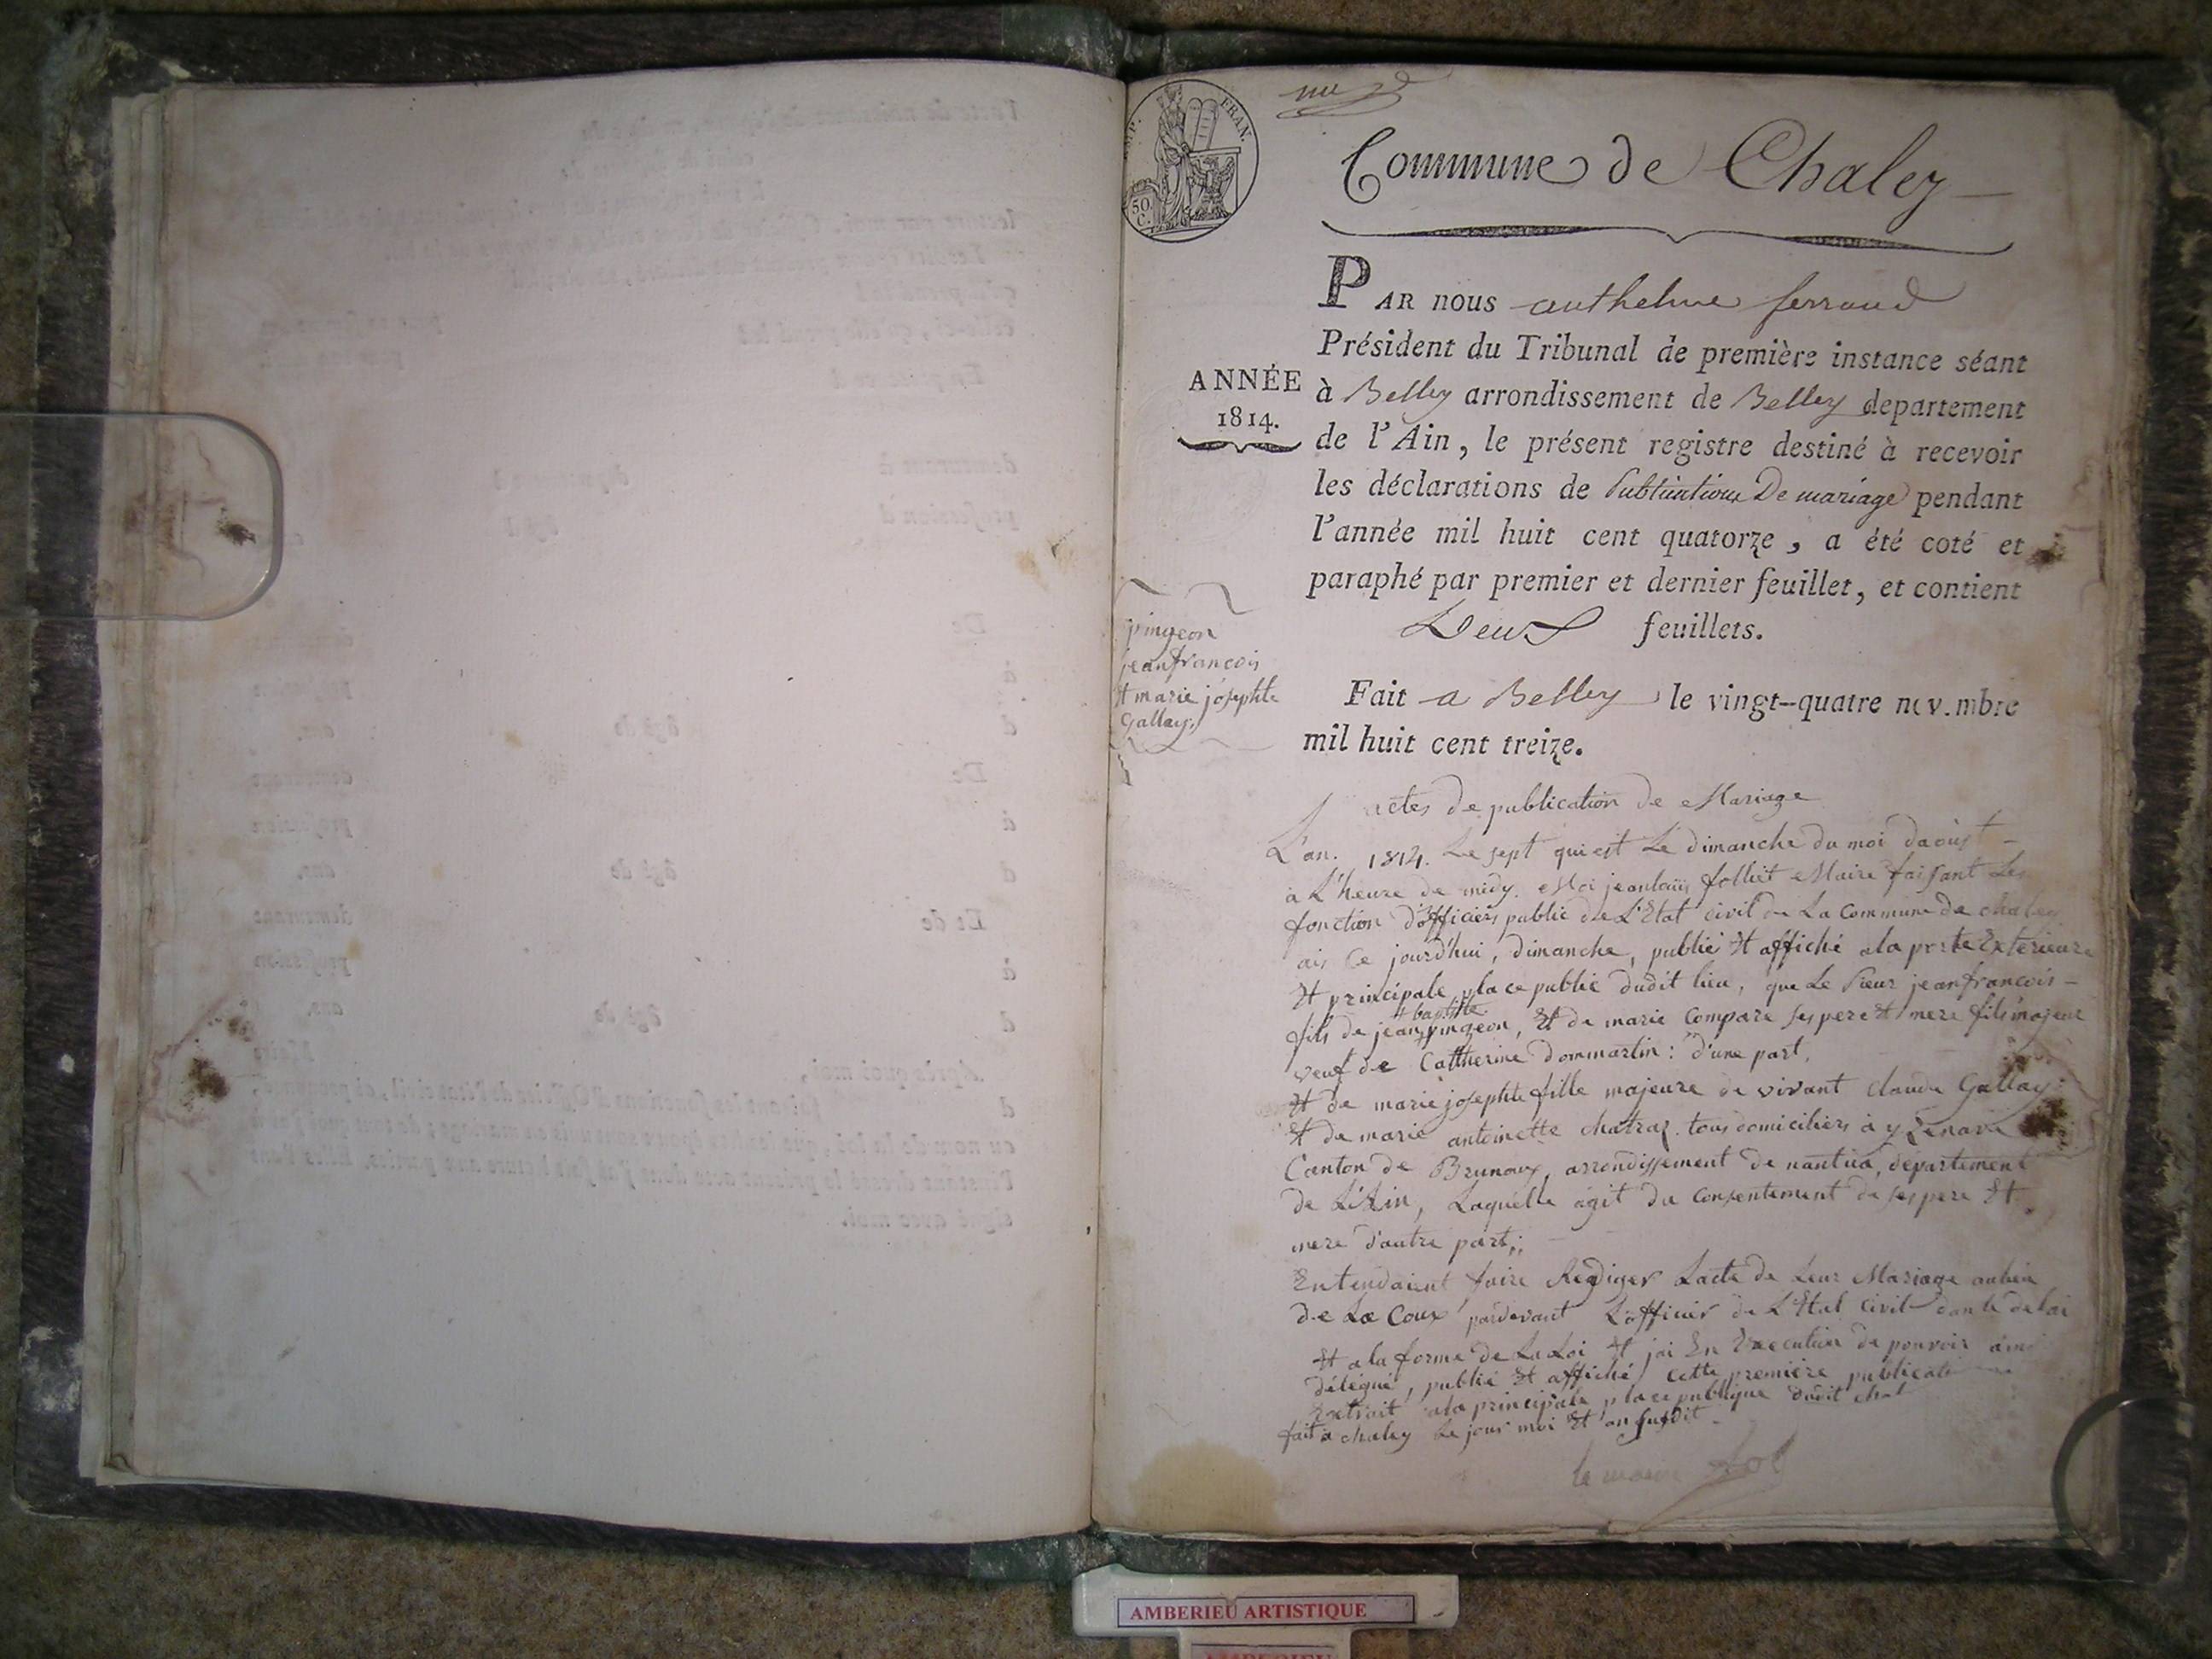 FRAN.
50.
C.
Commune de Chaley
PAR nous anthelme ferrand
Président du Tribunal de première instance séant
à Belley arrondissement de Belley departement
de l'Ain, le présent registre destiné à recevoir
les déclarations de Publications De mariage pendant
l'année mil huit cent quatorze, a été coté et
paraphé par premier et dernier feuillet, et contient
Deux feuillets.
Fait a Belley le vingt-quatre nov.mbre
mil huit cent treize.
ANNÉE
1814.
pingeon
jean françois
Et marie josephte
Gallay
actes de publication de Mariage
L'an. 1814. Le sept qui est Le dimanche du moi daoust
a L'heure de midy. Moi jean louis folliet Maire faisant Les
fonction d'officiers public de L'Etat civil de La Commune de chaley
ais ce jourd'hui, dimanche, publié Et affiché a la porte Exterieure
Et principale place public dudit lieu, que Le sieur jean francois
fils de jean baptiste pingeon, Et de marie Compare ses pere Et mere fils majeur
veuf de Cattherine dommartin: d'une part,
Et de marie josephte fille majeure de vivant claude Gallay
Et de marie antoinette chatraz. tous domiciliers à yzenave
Canton de Brunoux, arrondissement de nantua, département
de L'Ain, Laquelle agit du consentement de ses pere Et
mere d'autre part;
Entendaient faire Rediger Lacte de Leur Mariage au lieu
de La Coux pardevant L'officier de L'Etat civil dan le delai
Et a la forme de La Loi Et jai En Execution de pouvoir
délégué, publié Et affiché cette premiere
Extrait a la principale place publique dudit
fait a chaley Le jour moi Et an susdit
le maire fol
AMBERIEU ARTISTIQUE